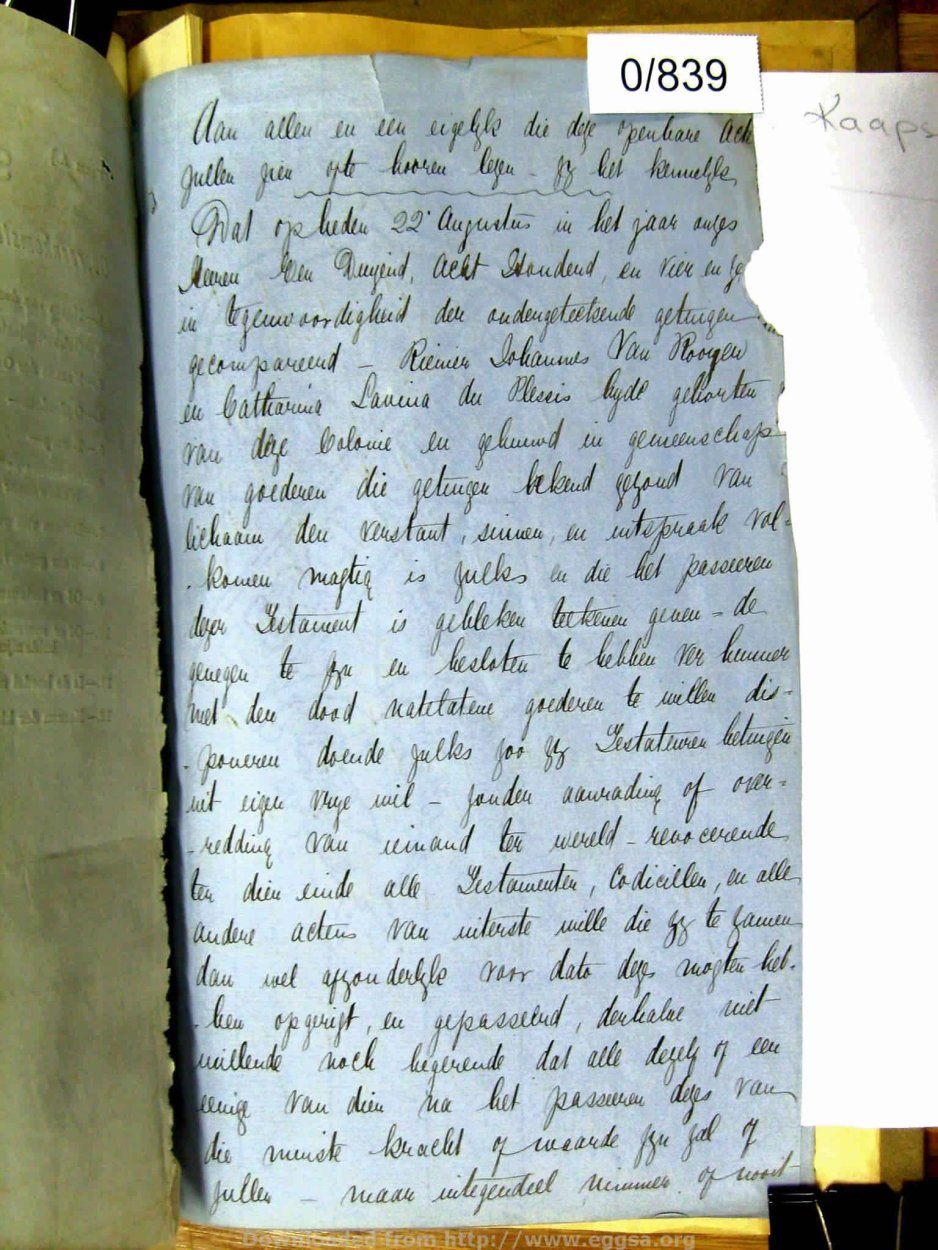 0/839
Kaaps
Aan allen en een eigelyk die deze openbare Act
zullen zien ofte hooren lezen - zy het kennelyk
Dat op heden 22' Augustus in het jaar onzes
Heeren Een Duyzend, Acht Honderd, en Vier en
in tegenwoordigheid der ondergeteekende getuigen
gecompareerd - Riemer Johannes Van Rooyen
en Catharina Lavina du Plessis byde geboorten
van deze Colonie en gehuwd in gemeenschap
van goederen die getuigen bekend gezond van
lichaam den verstant, sinnen, en uitspraak vol=
- komen magtig is zulks en die het passeeren
dezer Testament is gebleken teekenen geven = de
genegen te zyn en besloten te hebben ver hunner
met den dood natelatene goederen te willen dis-
- poneren doende zulks zoo zy Testateuren betuigen
uit eigen vrye wil - zonder aanrading of over=
- redding van iemand ter wereld - revocerende
ten dien einde alle Testamenten, Codicillen, en alle
andere actens van uiterste wille die zy te zamen
dan wel afzonderlyk voor dato dezes mogten heb-
- ben opgerigt, en gepasseerd, derhalve niet
willende noch begerende dat alle dezely of een
eenige van dien na het passeeren dezes van
die minste kracht of waarde zyn zal of
zullen - maar integendeel nimmer of nooit
Downloaded from http://www.eggsa.org